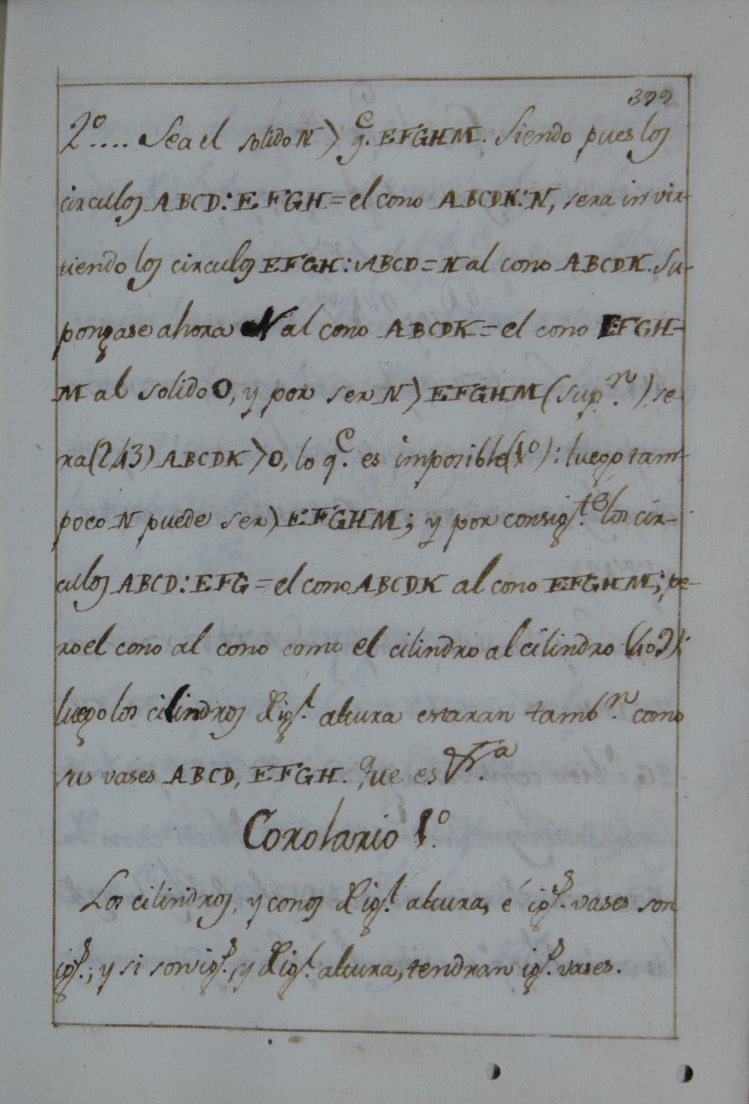 399
2º.... Sea el solido N > q.e EFGHM. Siendo pues los
circulos ABCD:EFGH=el cono ABCDK:N, sera invir-
tiendo los circulos EFGH:ABCD=N al cono ABCDK. Su-
pongase ahora N al cono ABCDK=el cono EFGH-
M al solido O, y por ser N > EFGHM (sup.n), se-
ra (243) ABCDK > O, lo q.e es imposible (1º): luego tam-
poco N puede ser > EFGHM; y por consig.te los cir-
culos ABCD:EFG=el cono ABCDK al cono EFGHM; pe-
ro el cono al cono como el cilindro al cilindro (402):
luego los cilindros d ig.l altura estaran tamb.n como
sus vases ABCD, EFGH. Que es
Corolario 1º.
Los cilindros, y conos d ig.l altura, é ig.s vases son
ig.s; y si son ig.s, y d ig.l altura, tendran ig.s vases.